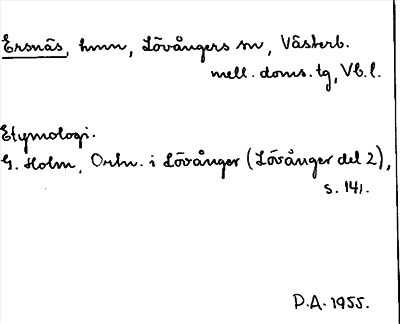 Ersnäs, hmn, Lövångers sn, Västerb.
mell. doms. tg, Vb. l.
Etymologi.
G. Holm, Ortn. i Lövånger (Lövånger del 2),
s. 141.
P.A. 1955.